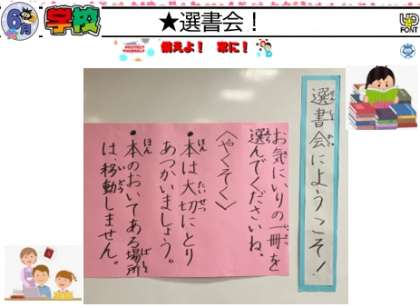 6月
学校
★選書会！
UD
FONT
備えよ！　常に！
選書会にようこそ！
お気にいりの一冊を
選んでくださいね。
〈やくそく〉
・本は大切にとり
あつかいましょう。
・本のおいてある場所
は、移動しません。